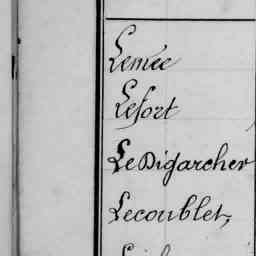 Lemée
Lefort
LeDigarcher
Lecoublet,